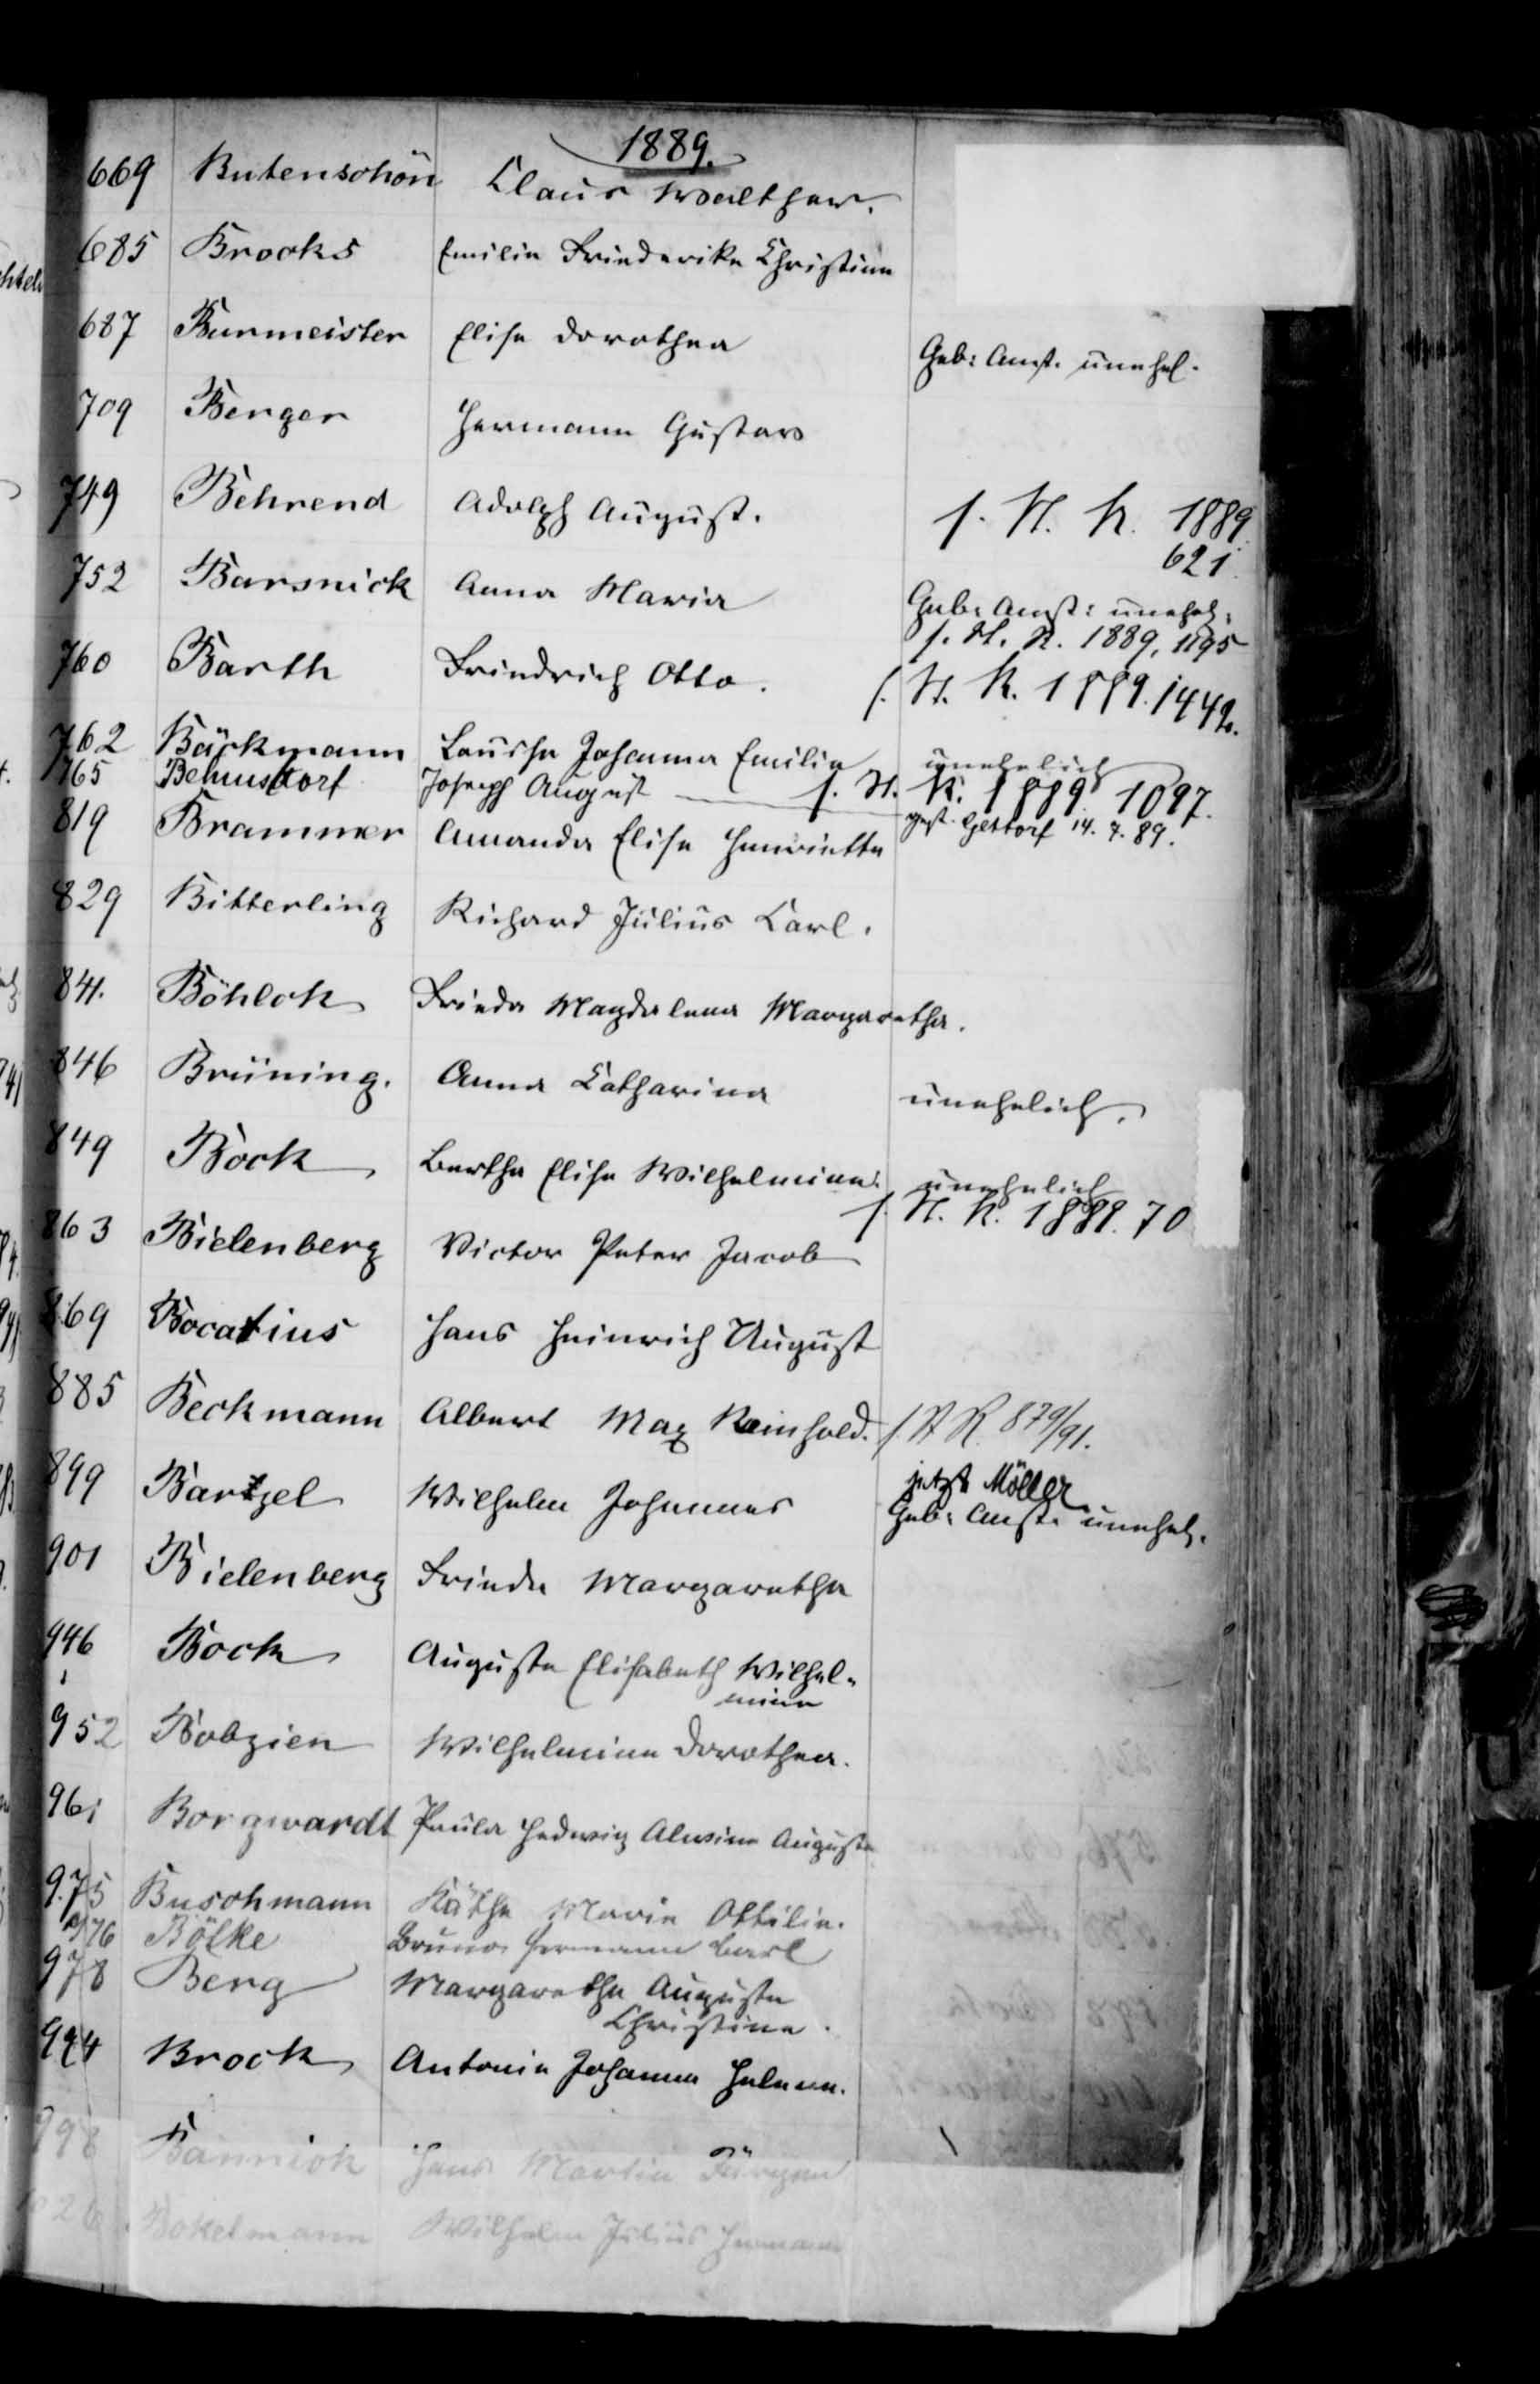 1889.
669 Butenschön Claus Walther.
685 Brocks Emilie Friederike Christine
687 Burmeister Elise Dorothea Geb: Anst. unehel.
709 Berger Hermann Gustav
749 Behrend Adolph August. s. H. R. 1889
621.
752 Barsnick Anna Maria Geb: Anst: unehel:
s. H. R. 1889, 1195
760 Barth Friedrich Otto. s. H. R. 1889. 1442.
762 Bäckmann Louise Johanna Emilie unehelich
765 Behnsdorf Joseph August s. H. R. 1889 1097.
819 Brammer Amanda Elise Henriette gest. Gettorf 14. 7. 89.
829 Bitterling Richard Julius Carl.
841. Böhlck Frieda Magdalena Margaretha.
846 Brüning. Anna Catharina unehelich.
849 Bock Bertha Elise Wilhelmine. unehelich
s. H. R. 1889. 70
863 Bielenberg Victor Peter Jacob
869 Bocatius Hans Heinrich August
885 Beckmann Albert Max Reinhold. s. H. R. 879/91.
899 Bartzel Wilhelm Johannes jetzt Möller
Geb: Anst. unehel.
901 Bielenberg Frieda Margaretha
946 Bock Auguste Elisabeth Wilhel-
mine
952 Bobzien Wilhelmine Dorothea.
961 Borgwardt Paula Hedwig Alwine Auguste
975 Buschmann Käthe Marie Ottilie.
976 Bölke Bruno Hermann Carl
978 Berg Margaretha Auguste
Christine.
994 Brock Antonie Johanna Helene.
998 Bannick Hans Martin Jürgen
Bokelmann Wilhelm Julius Hermann